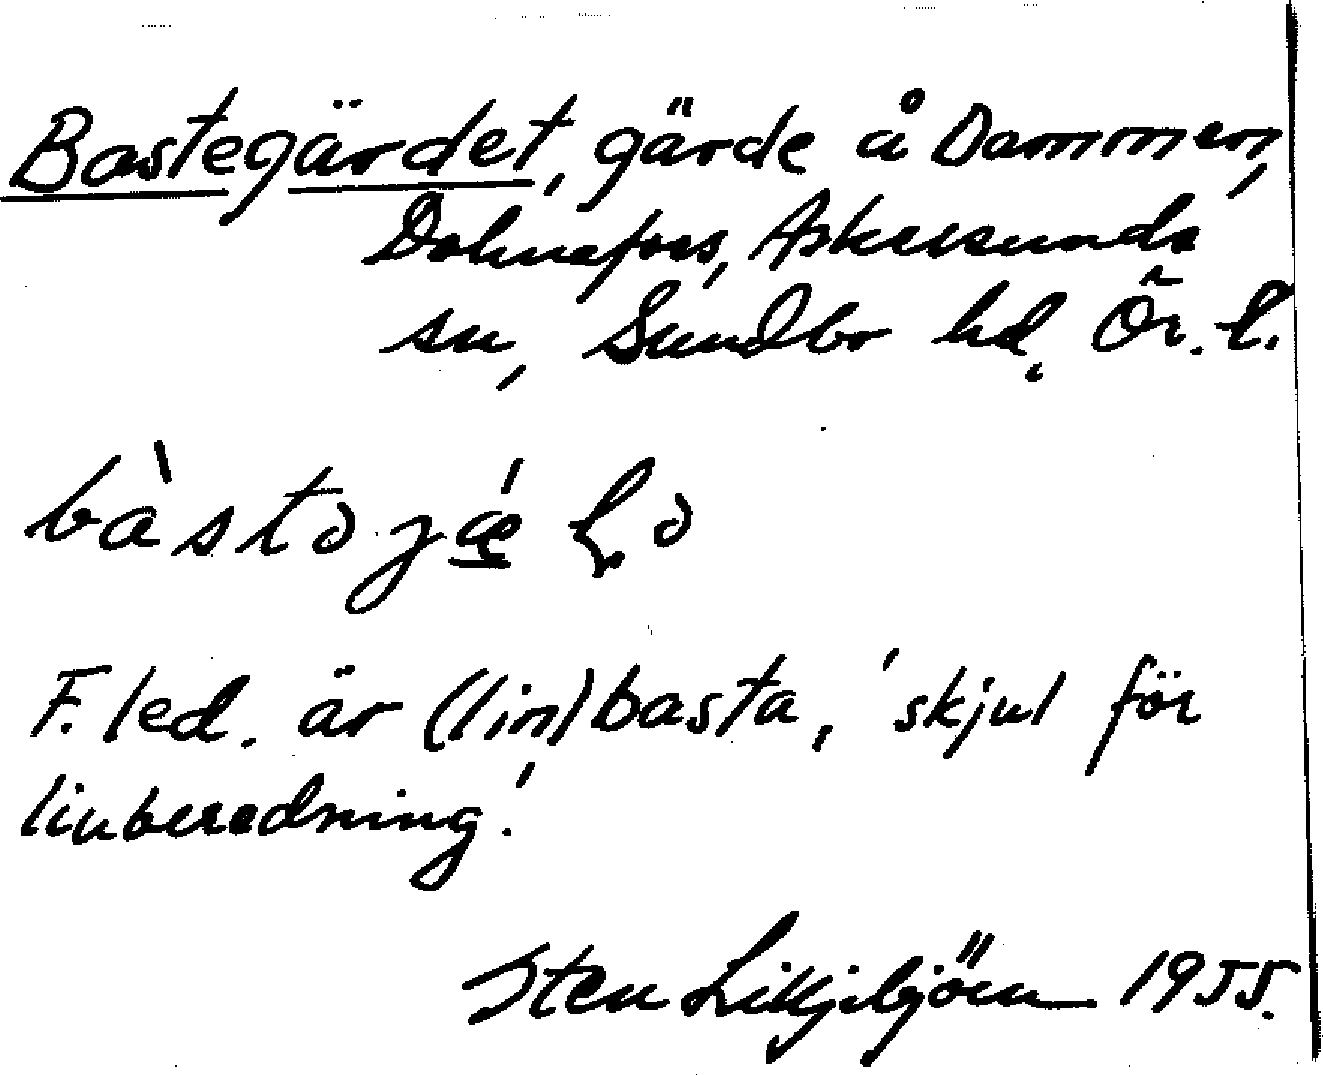 Bastegärdet, gärde å Dammen,
Dohnafors, Askersunds
sn, Sundbo hd. Ör. l.
bàstəjǽɽə
F. led. är (lin)basta, 'skjul för
linberedning'.
Sten 1955.